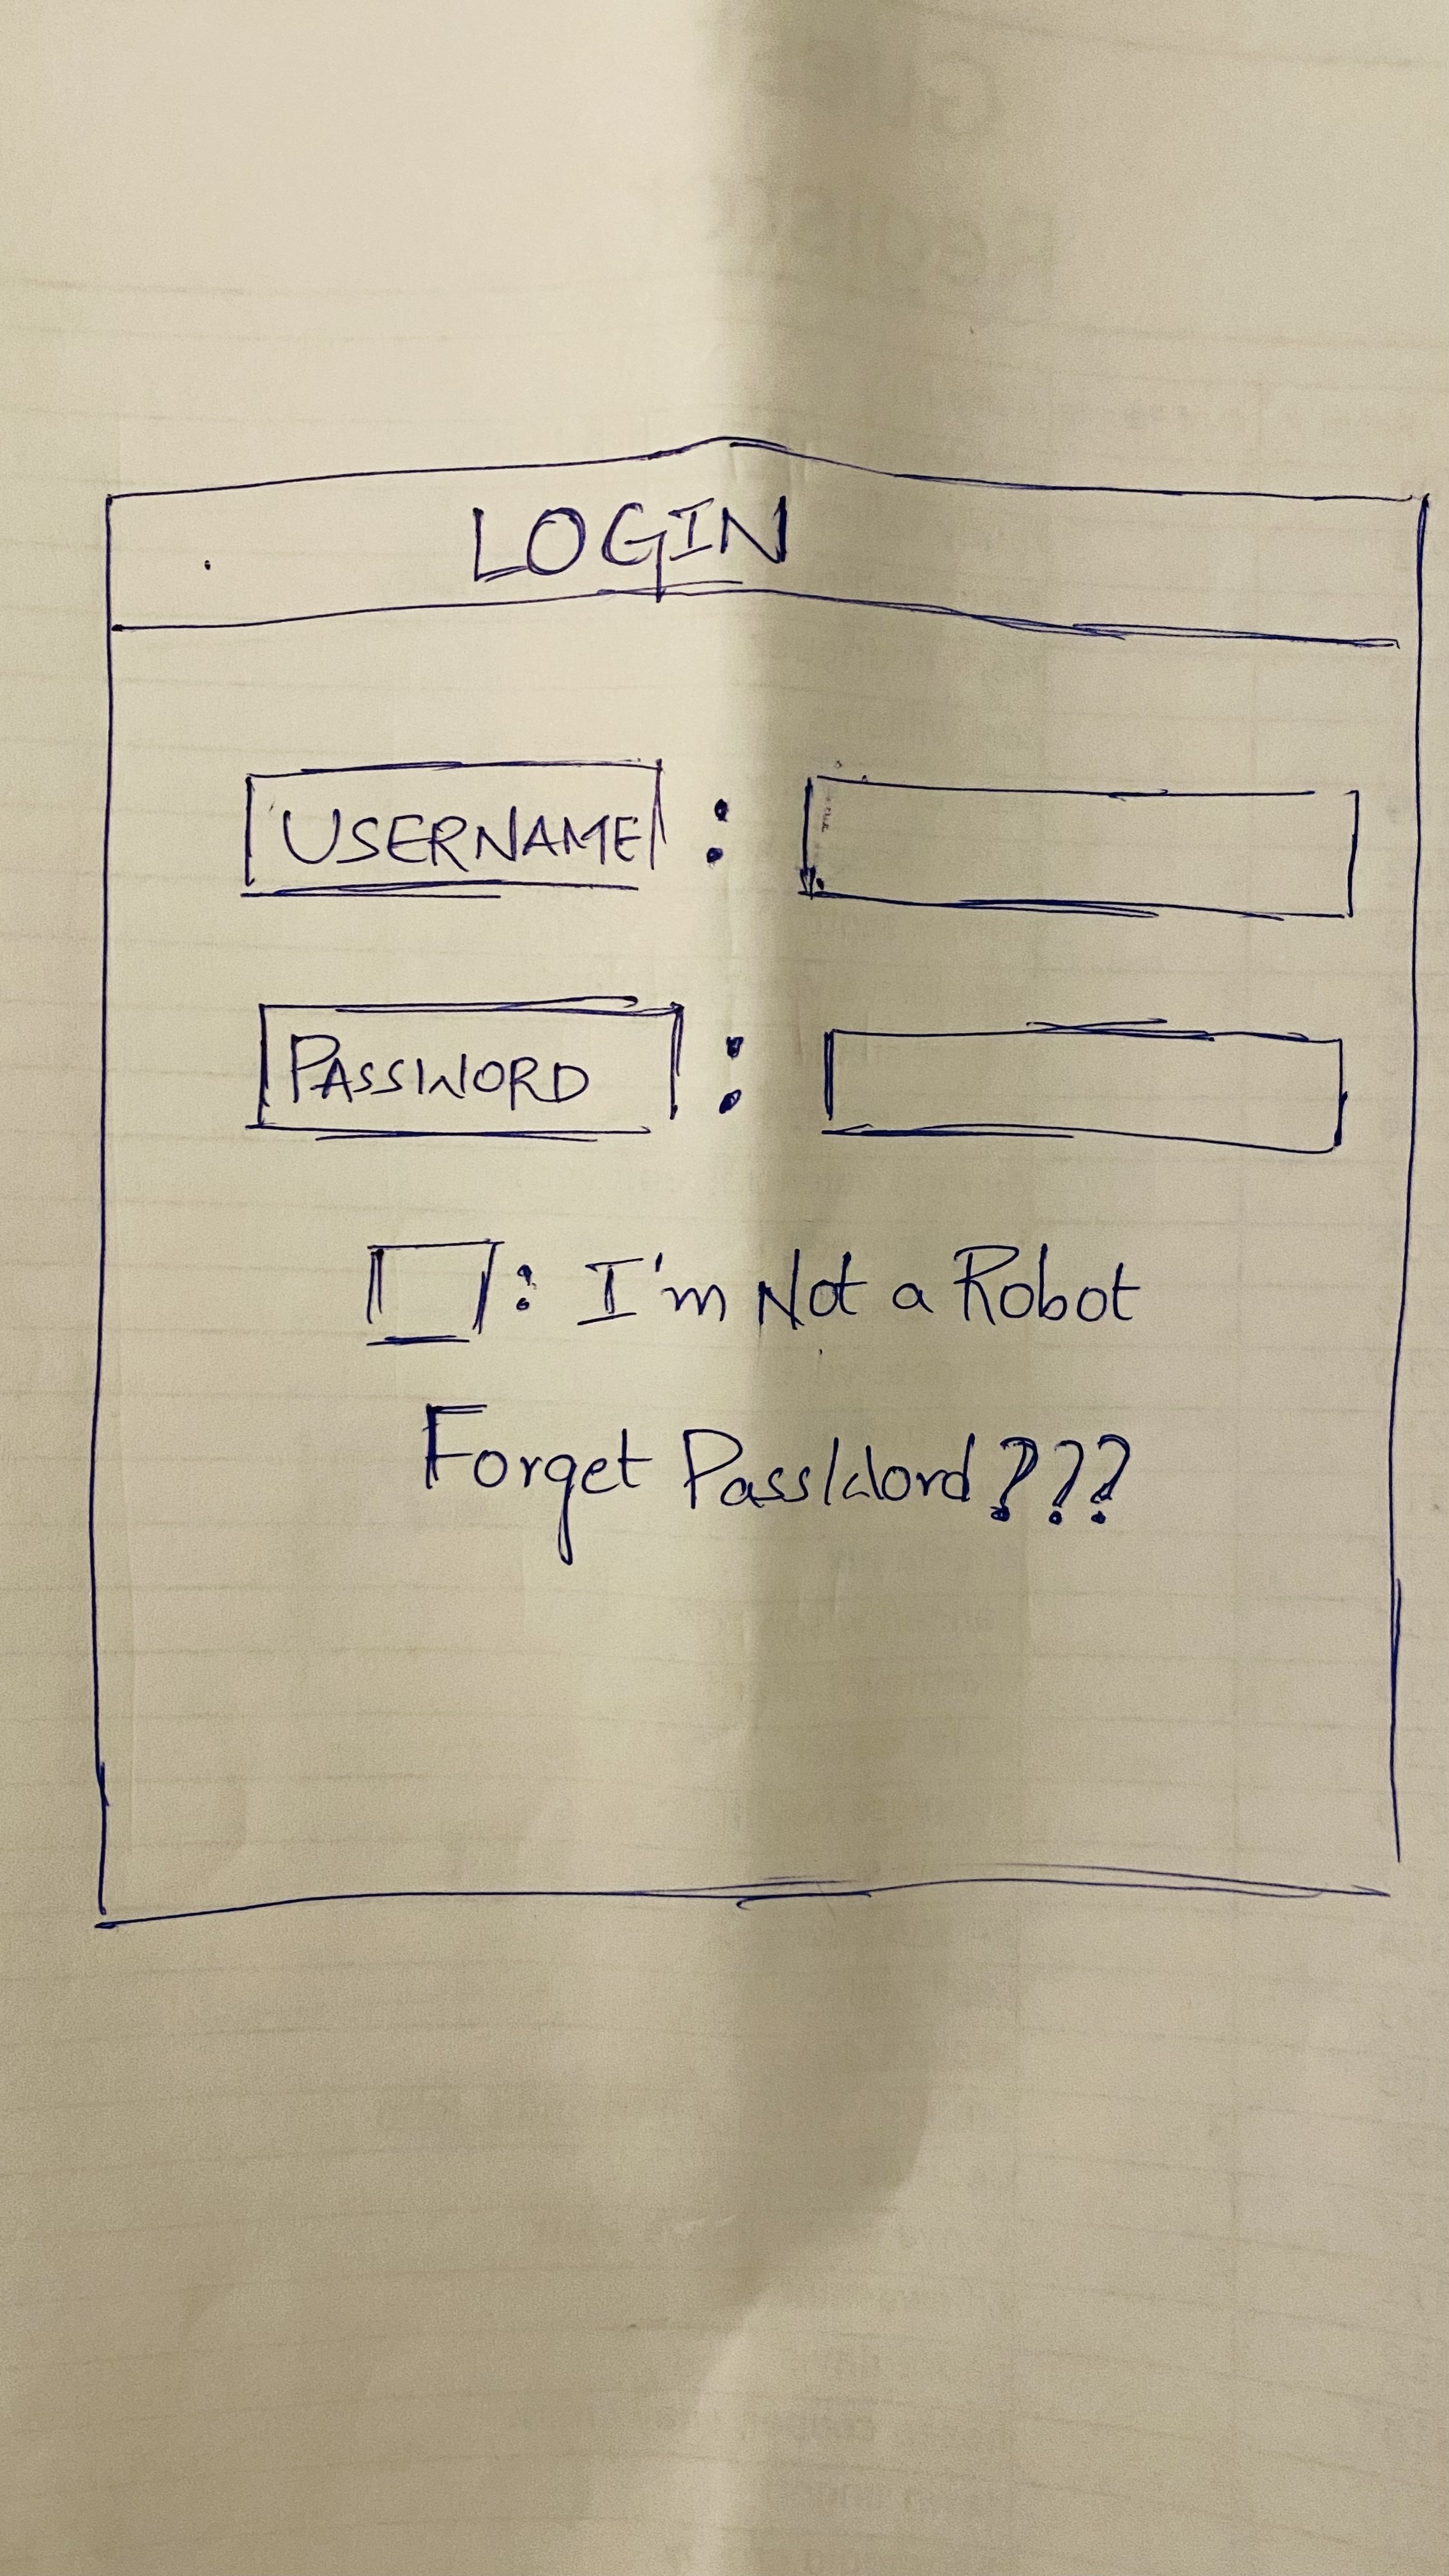 LOGIN
USERNAME :
PASSWORD :
: I'm Not a Robot
Forget Password???